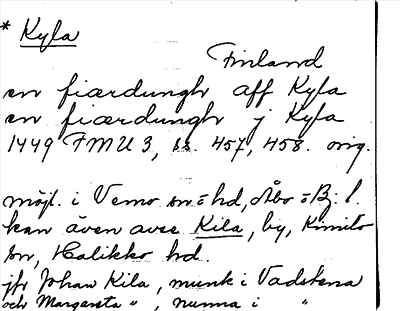 * Kyla
Finland
en fiærdungh aff Kyla
en fiærdungh j Kyla
1449 FMU 3, ss. 457, 458. orig.
möjl. i Vemo sn o hd, Åbo o Bj. l.
kan även avse Kila, by, Kimito
sn, Halikko hd.
jfr Johan Kila, munk i Vadstena
och Margareta ", nunna i "